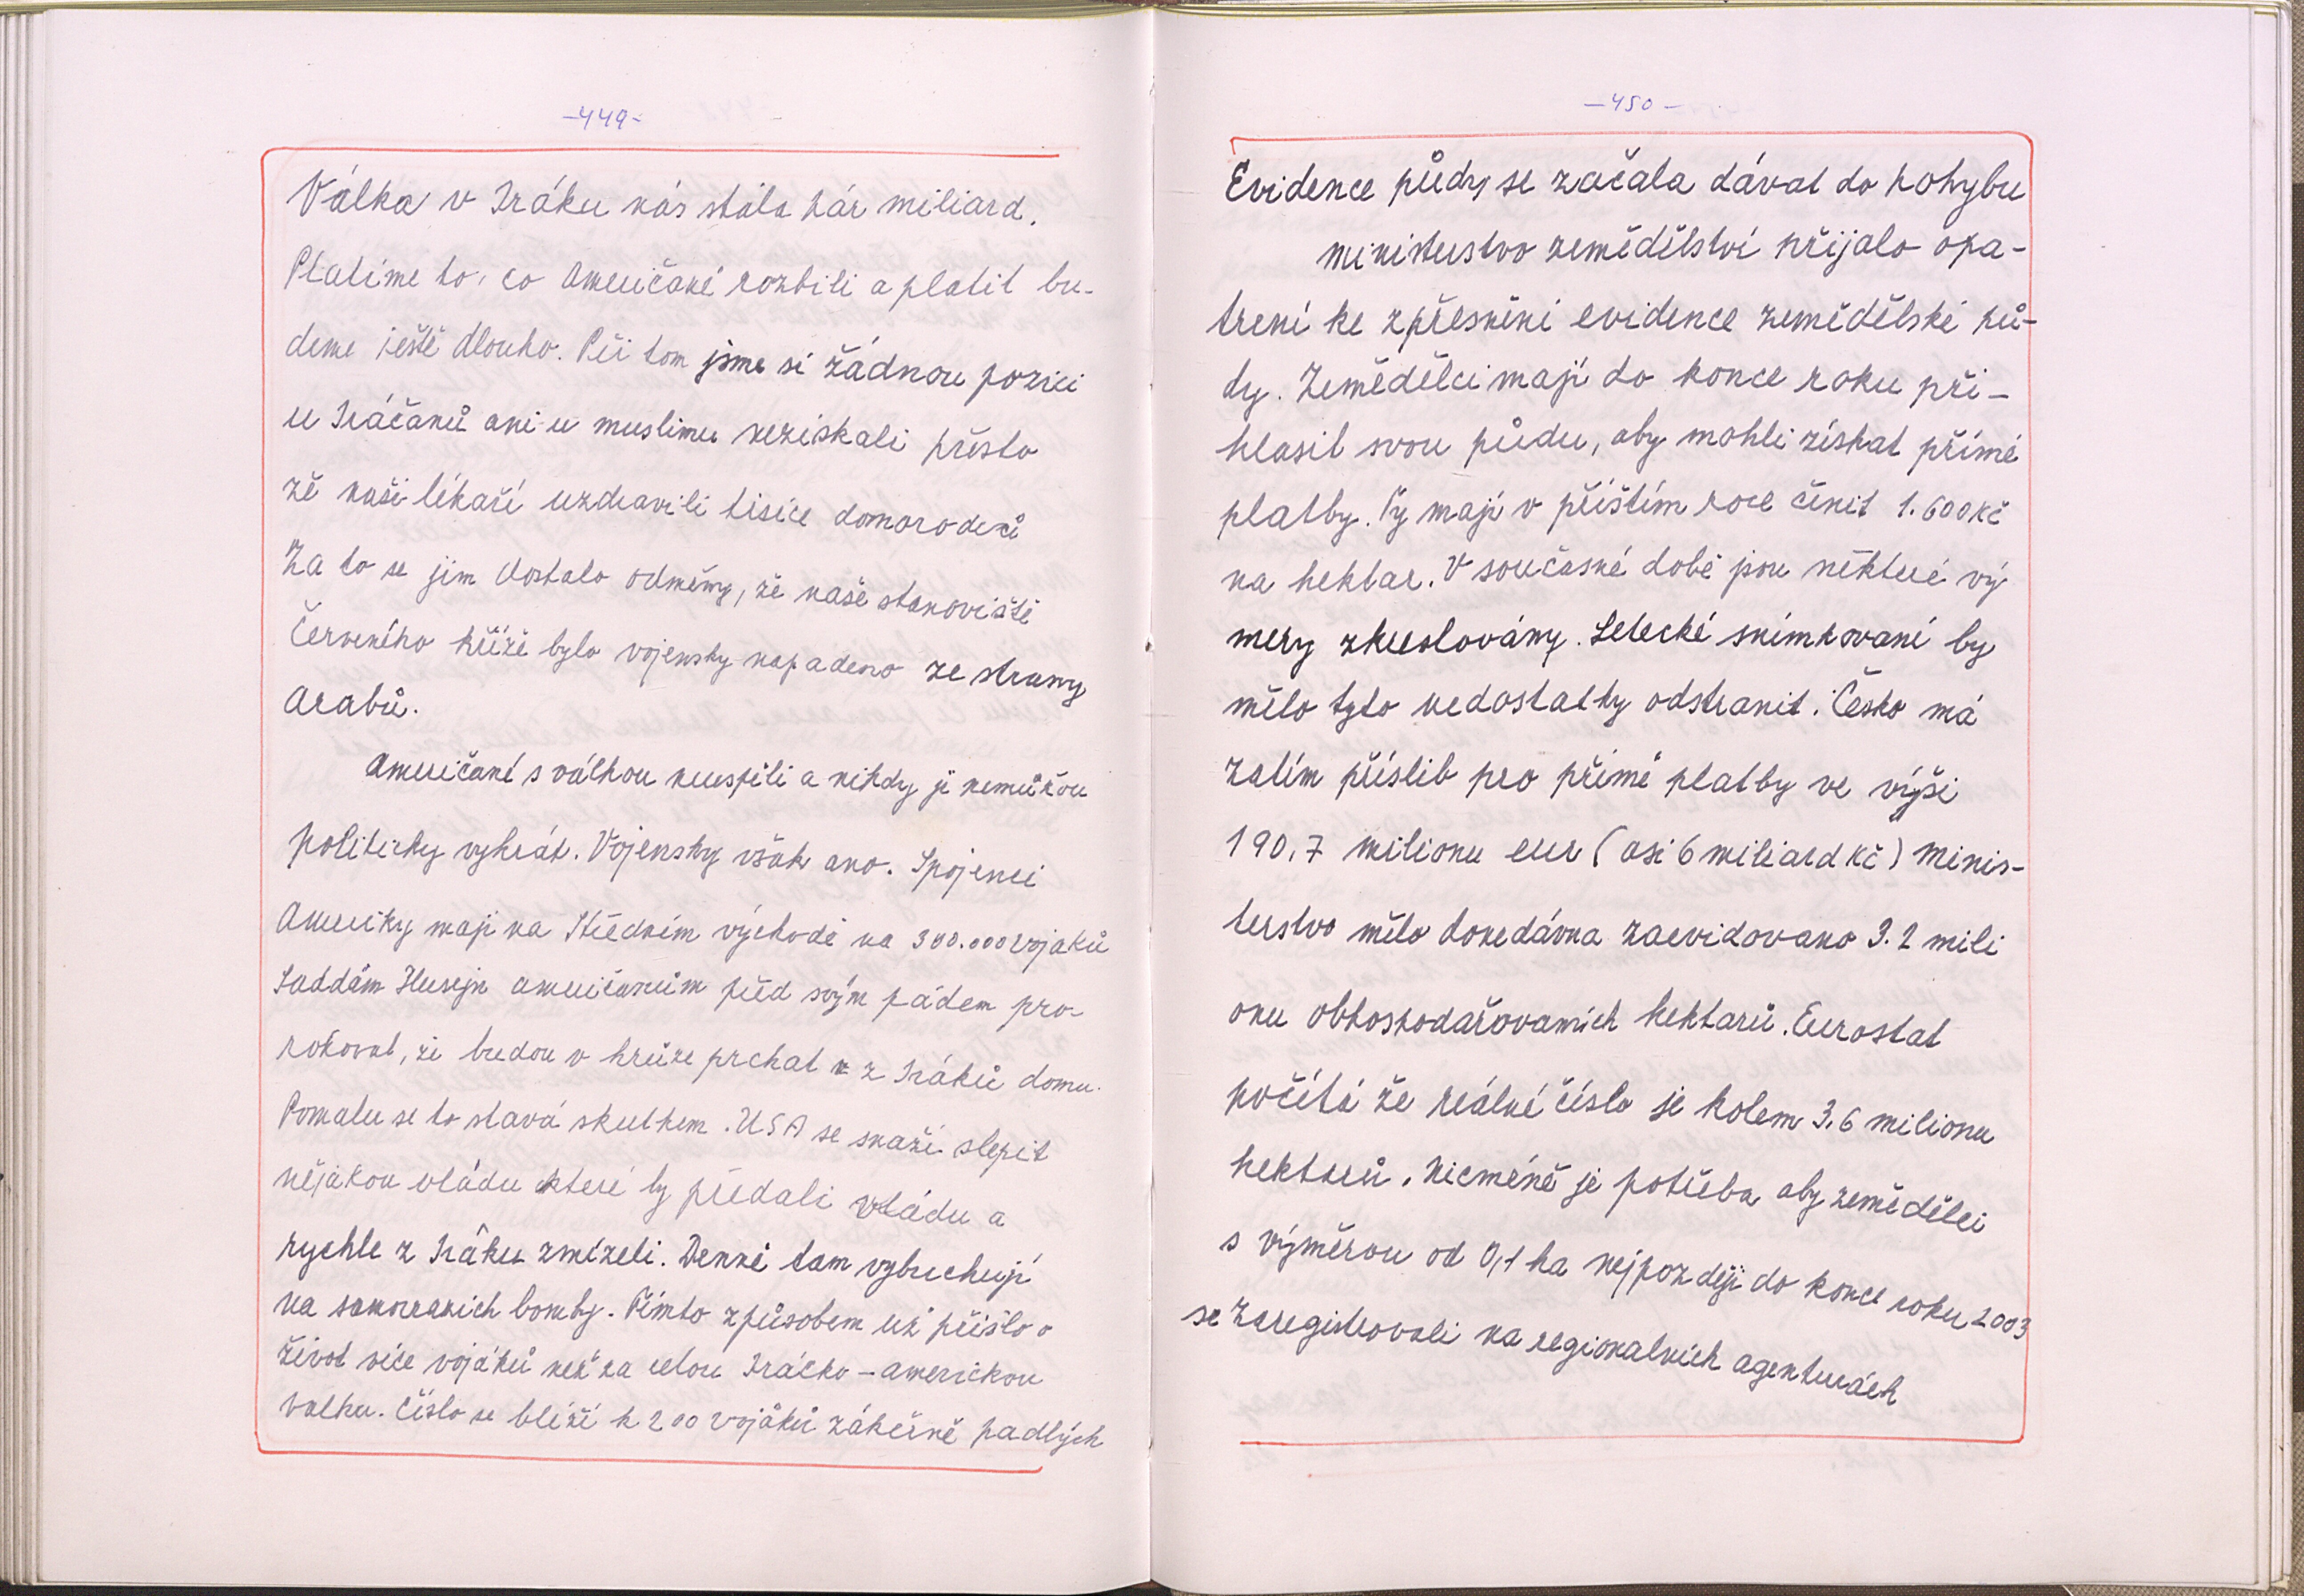 -449-
Válka v Iráku nás stála pár miliard.
Platíme to, co Američané rozbili a platit bu-
deme ještě dlouho. Při tom jsme si žádnou pozici
u Iráčanů ani u muslimu nezískali přesto
zě naši lékaři uzdravili tisíce domorodců
Za to se jim dostalo odměny, že naše stanoviště
Červeného kříže bylo vojensky napadeno ze strany
Arabů.
Američané s válkou neuspěli a nikdy ji nemůžou
politicky vyhrát. Vojensky však ano. Spojenci
Ameriky mají na Středním východě na 300.000 vojáků
Saddám Husejn američanům před svým pádem pro-
rokoval, že budou v hrůze prchat z Iráků domu.
Pomalu se to stavá skutkem. USA se snaží slepit
nějakou vládu které by předali vládu a
rychle z Iráku zmizeli. Denně tam vybuchují
na samoranich bomby. Tímto způsobem už přišlo o
život více vojáků než za celou Irácko-americkou
valku. Číslo se blíží k 200 vojáků zákeřně padlých
-450-
Evidence půdy se začala dávat do pohybu
ministerstvo zemědělství přijalo opa-
trení ke zpřesnění evidence zemědělské pů-
dy. Zemědělci mají do konce roku při-
hlasit svou půdu, aby mohli získat přímé
platby. Ty mají v příštím roce činit 1.600 Kč
na hektar. V současné době jsou některé vý
mery zkreslovány. Letecké snímkovaní by
mělo tyto nedostatky odstranit. Česko má
zatím příslib pro přímé platby ve výši
190,7 milionu eur (asi 6 miliard Kč) minis-
terstvo mělo donedávna zaevidovano 3.2 mili
onu obhospodařovaních hektarů. Eurostat
počítá že reálné číslo je kolem 3,6 milionu
hektarů. Nicméně je potřeba aby zemědělci
s výměrou od 0,1 ha nejpozději do konce roku 2003
se zaregistrovali na regionalních agenturách